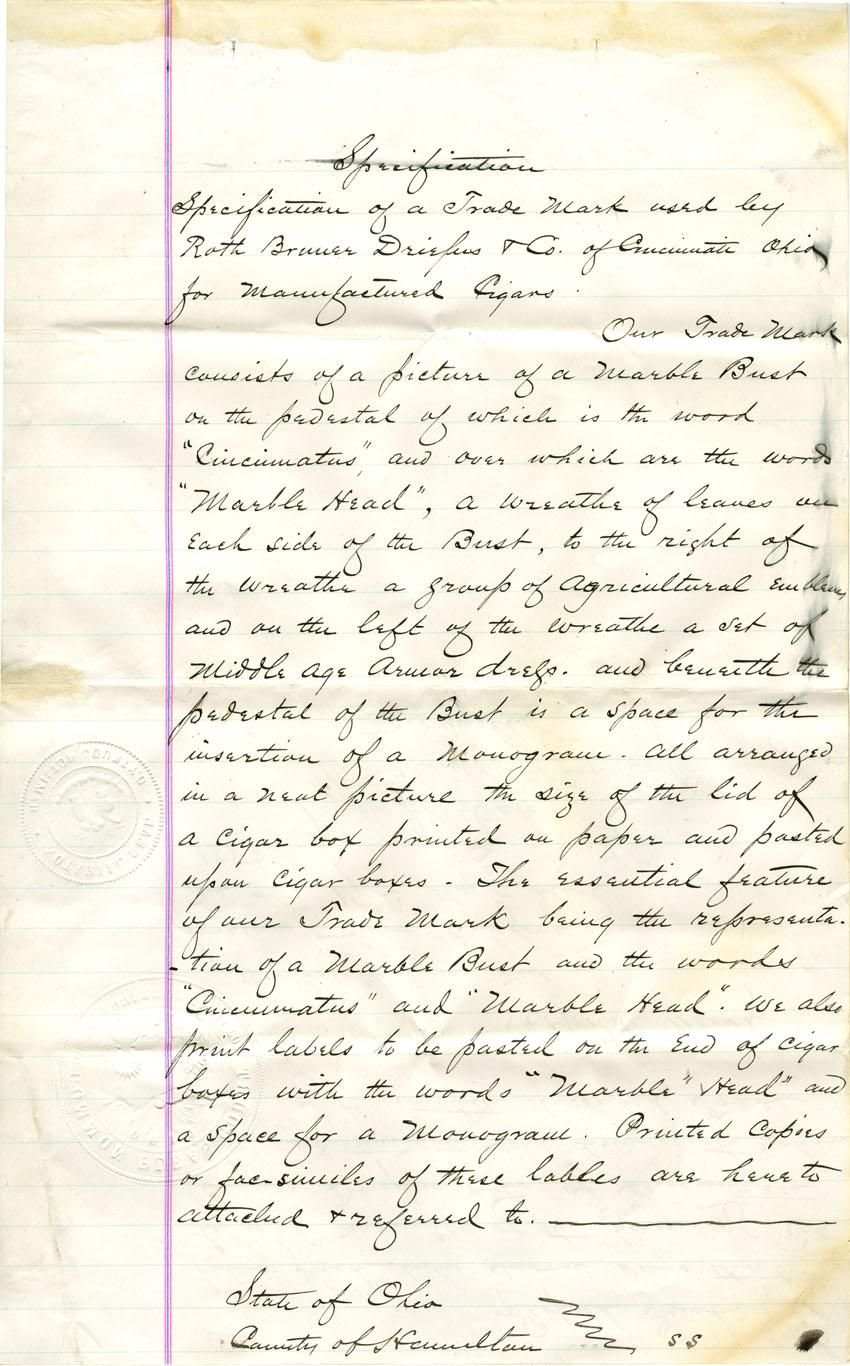 Specification
Specification of a Trade Mark used by
Roth Bruner Driefus & Co. of Cincinnati Ohio,
for Manufactured Cigars.
Our Trade Mark
consists of a picture of a Marble Bust
on the pedestal of which is the word
"Cincinnatus", and over which are the words
"Marble Head", a wreathe of leaves on
Each side of the Bust, to the right of
the wreathe a group of Agricultural emblems
and on the left of the wreathe a set of
Middle age Armor dress. and beneith the
pedestal of the Bust is a space for the
insertion of a Monogram. all arranged
in a neat picture the size of the lid of
a cigar box printed on paper and pasted
upon cigar boxes - The essential feature
of our Trade Mark being the representa-
-tion of a Marble Bust and the words
"Cincinnatus" and "Marble Head". We also
print labels to be pasted on the End of cigar
boxes with the words "Marble" Head" and
a space for a Monogram. Printed Copies
or fac-similes of these lables are hereto
attached & referred to.
State of Ohio
County of Hamilton ss